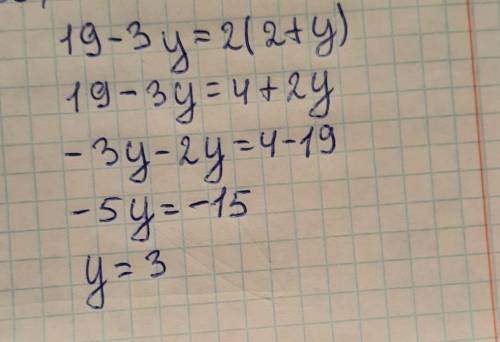 19-3y=2(2+y)
19-3y=4+2y
-3y-2y=4-19
-5y=-15
y=3